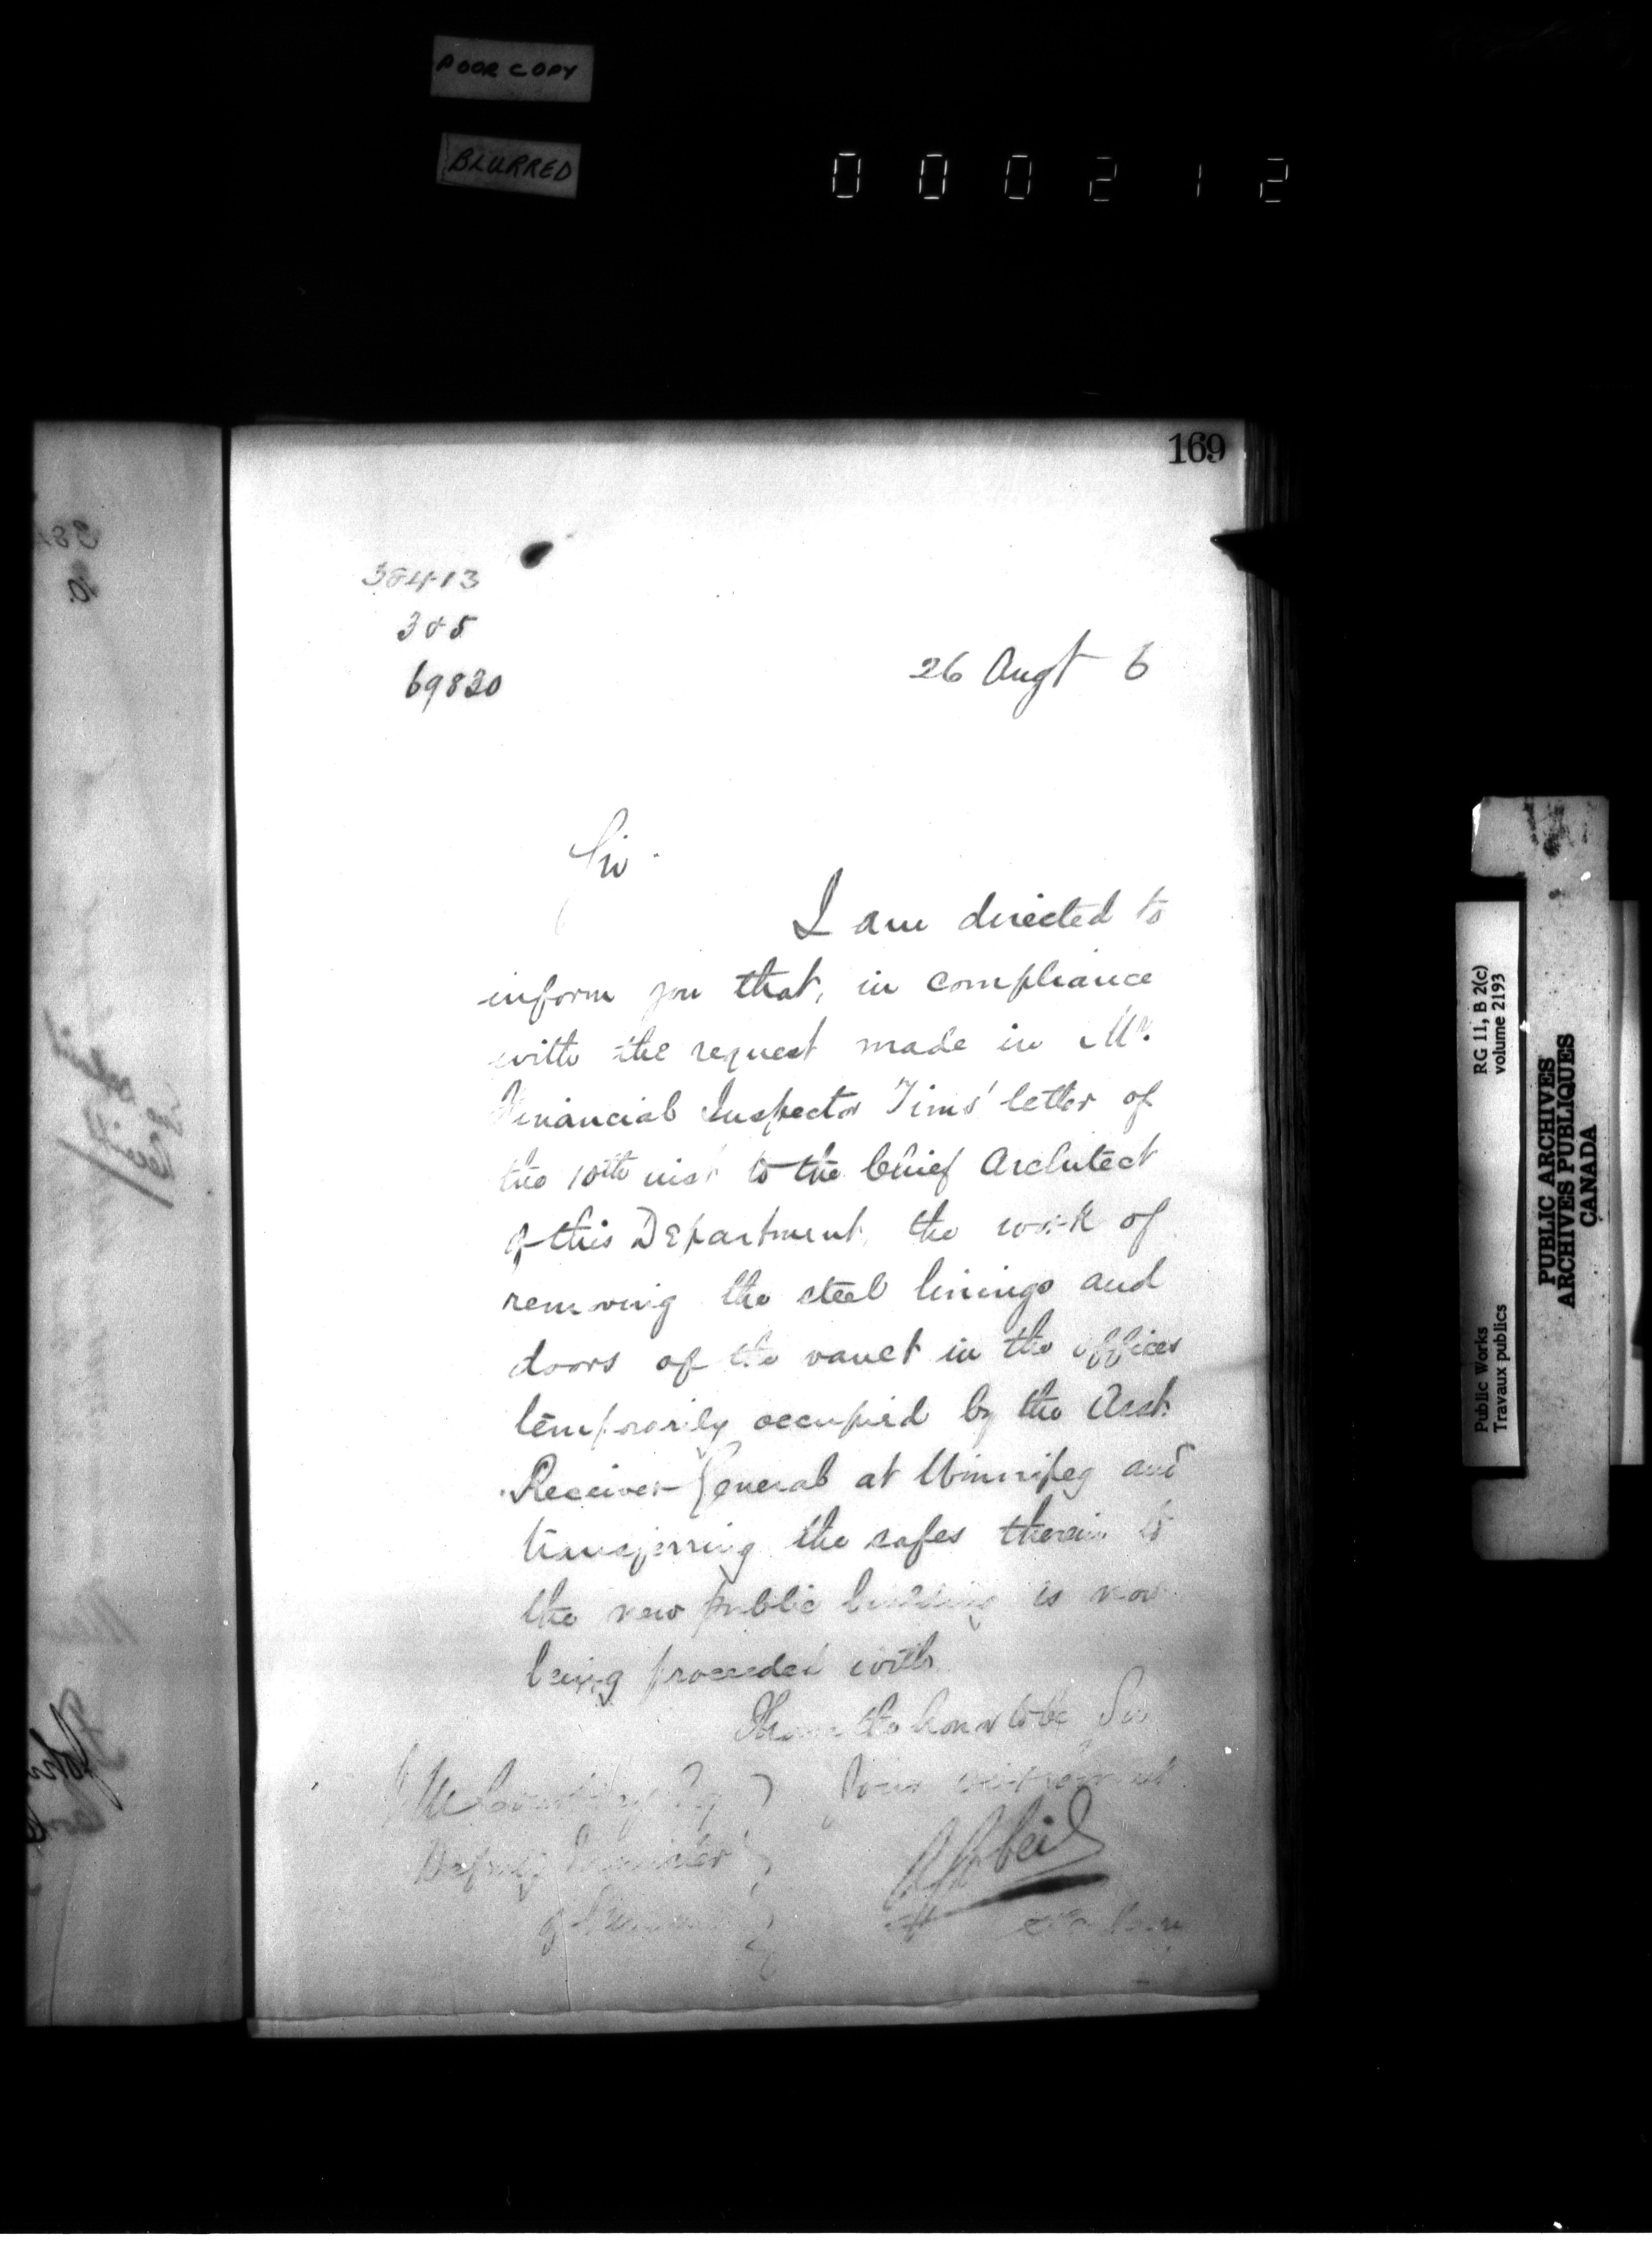 POOR COPY
BLURRED
000212
169
38413
305
69820
26 Augt 6
Sir
I am directed to
inform you that, in compliance
with the request made in Mr.
Financial Inspector Tims' letter of
the 10th inst to the Chief Architect
of this Department, the work of
removing the steel linings and
doors of the vault in the offices
temporarily occupied by the Asst.
Receiver-General at Winnipeg and
transferring the safes therein to
the new public building is now
being proceeded with.
I have the honor to be Sir
J M Courtney Esq
Your obedient
Deputy Minister
A Gobeil
of Finance
RG 11, B 2(c)
volume 2193
Public Works
Travaux publics
PUBLIC ARCHIVES
ARCHIVES PUBLIQUES
CANADA